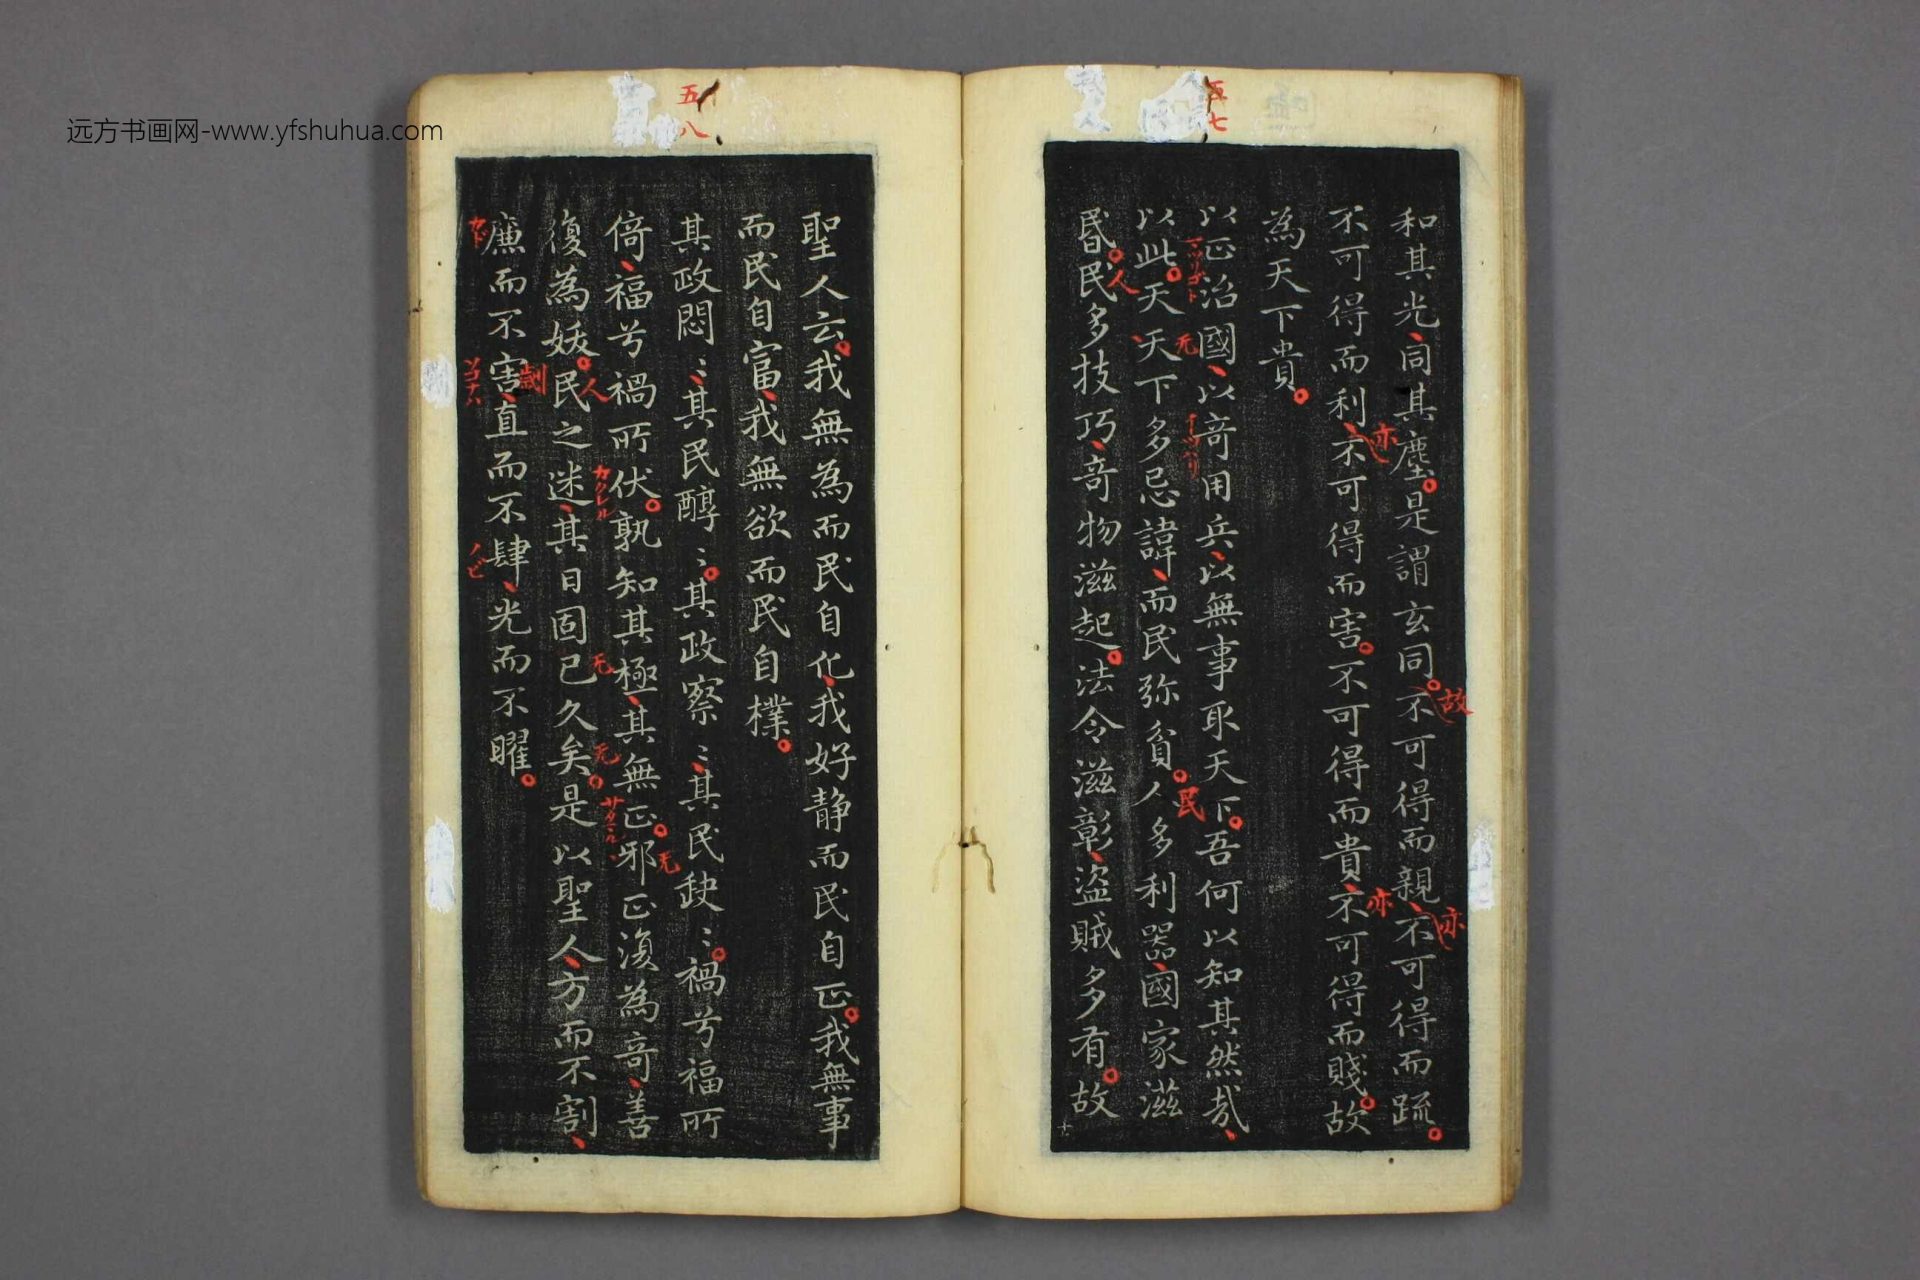 远方书画网-www.yfshuhua.com
五七
和其光同其塵是謂玄同不可得而親不可得而踈
故
亦
不可得而利不可得而害不可得而貴不可得而賤故
亦
亦
為天下貴
以正治國以奇用兵以無事取天下吾何以知其然哉
以此天天下多忌諱而民弥貧人多利器國家滋
无
民
昬民多技巧奇物滋起法令滋彰盗賊多有故
人
五八
聖人云我無為而民自化我好静而民自正我無事
而民自富我無欲而民自樸
其政悶〻其民醇〻其政察〻其民缺〻禍兮福所
倚福兮禍所伏孰知其極其無正邪正復為奇善
无
カクレル
復為妖民之迷其日固已久矣是以聖人方而不割
人
无
无
廉而不害直而不肆光而不曜
劌
カド
ソコナハ
ノビ